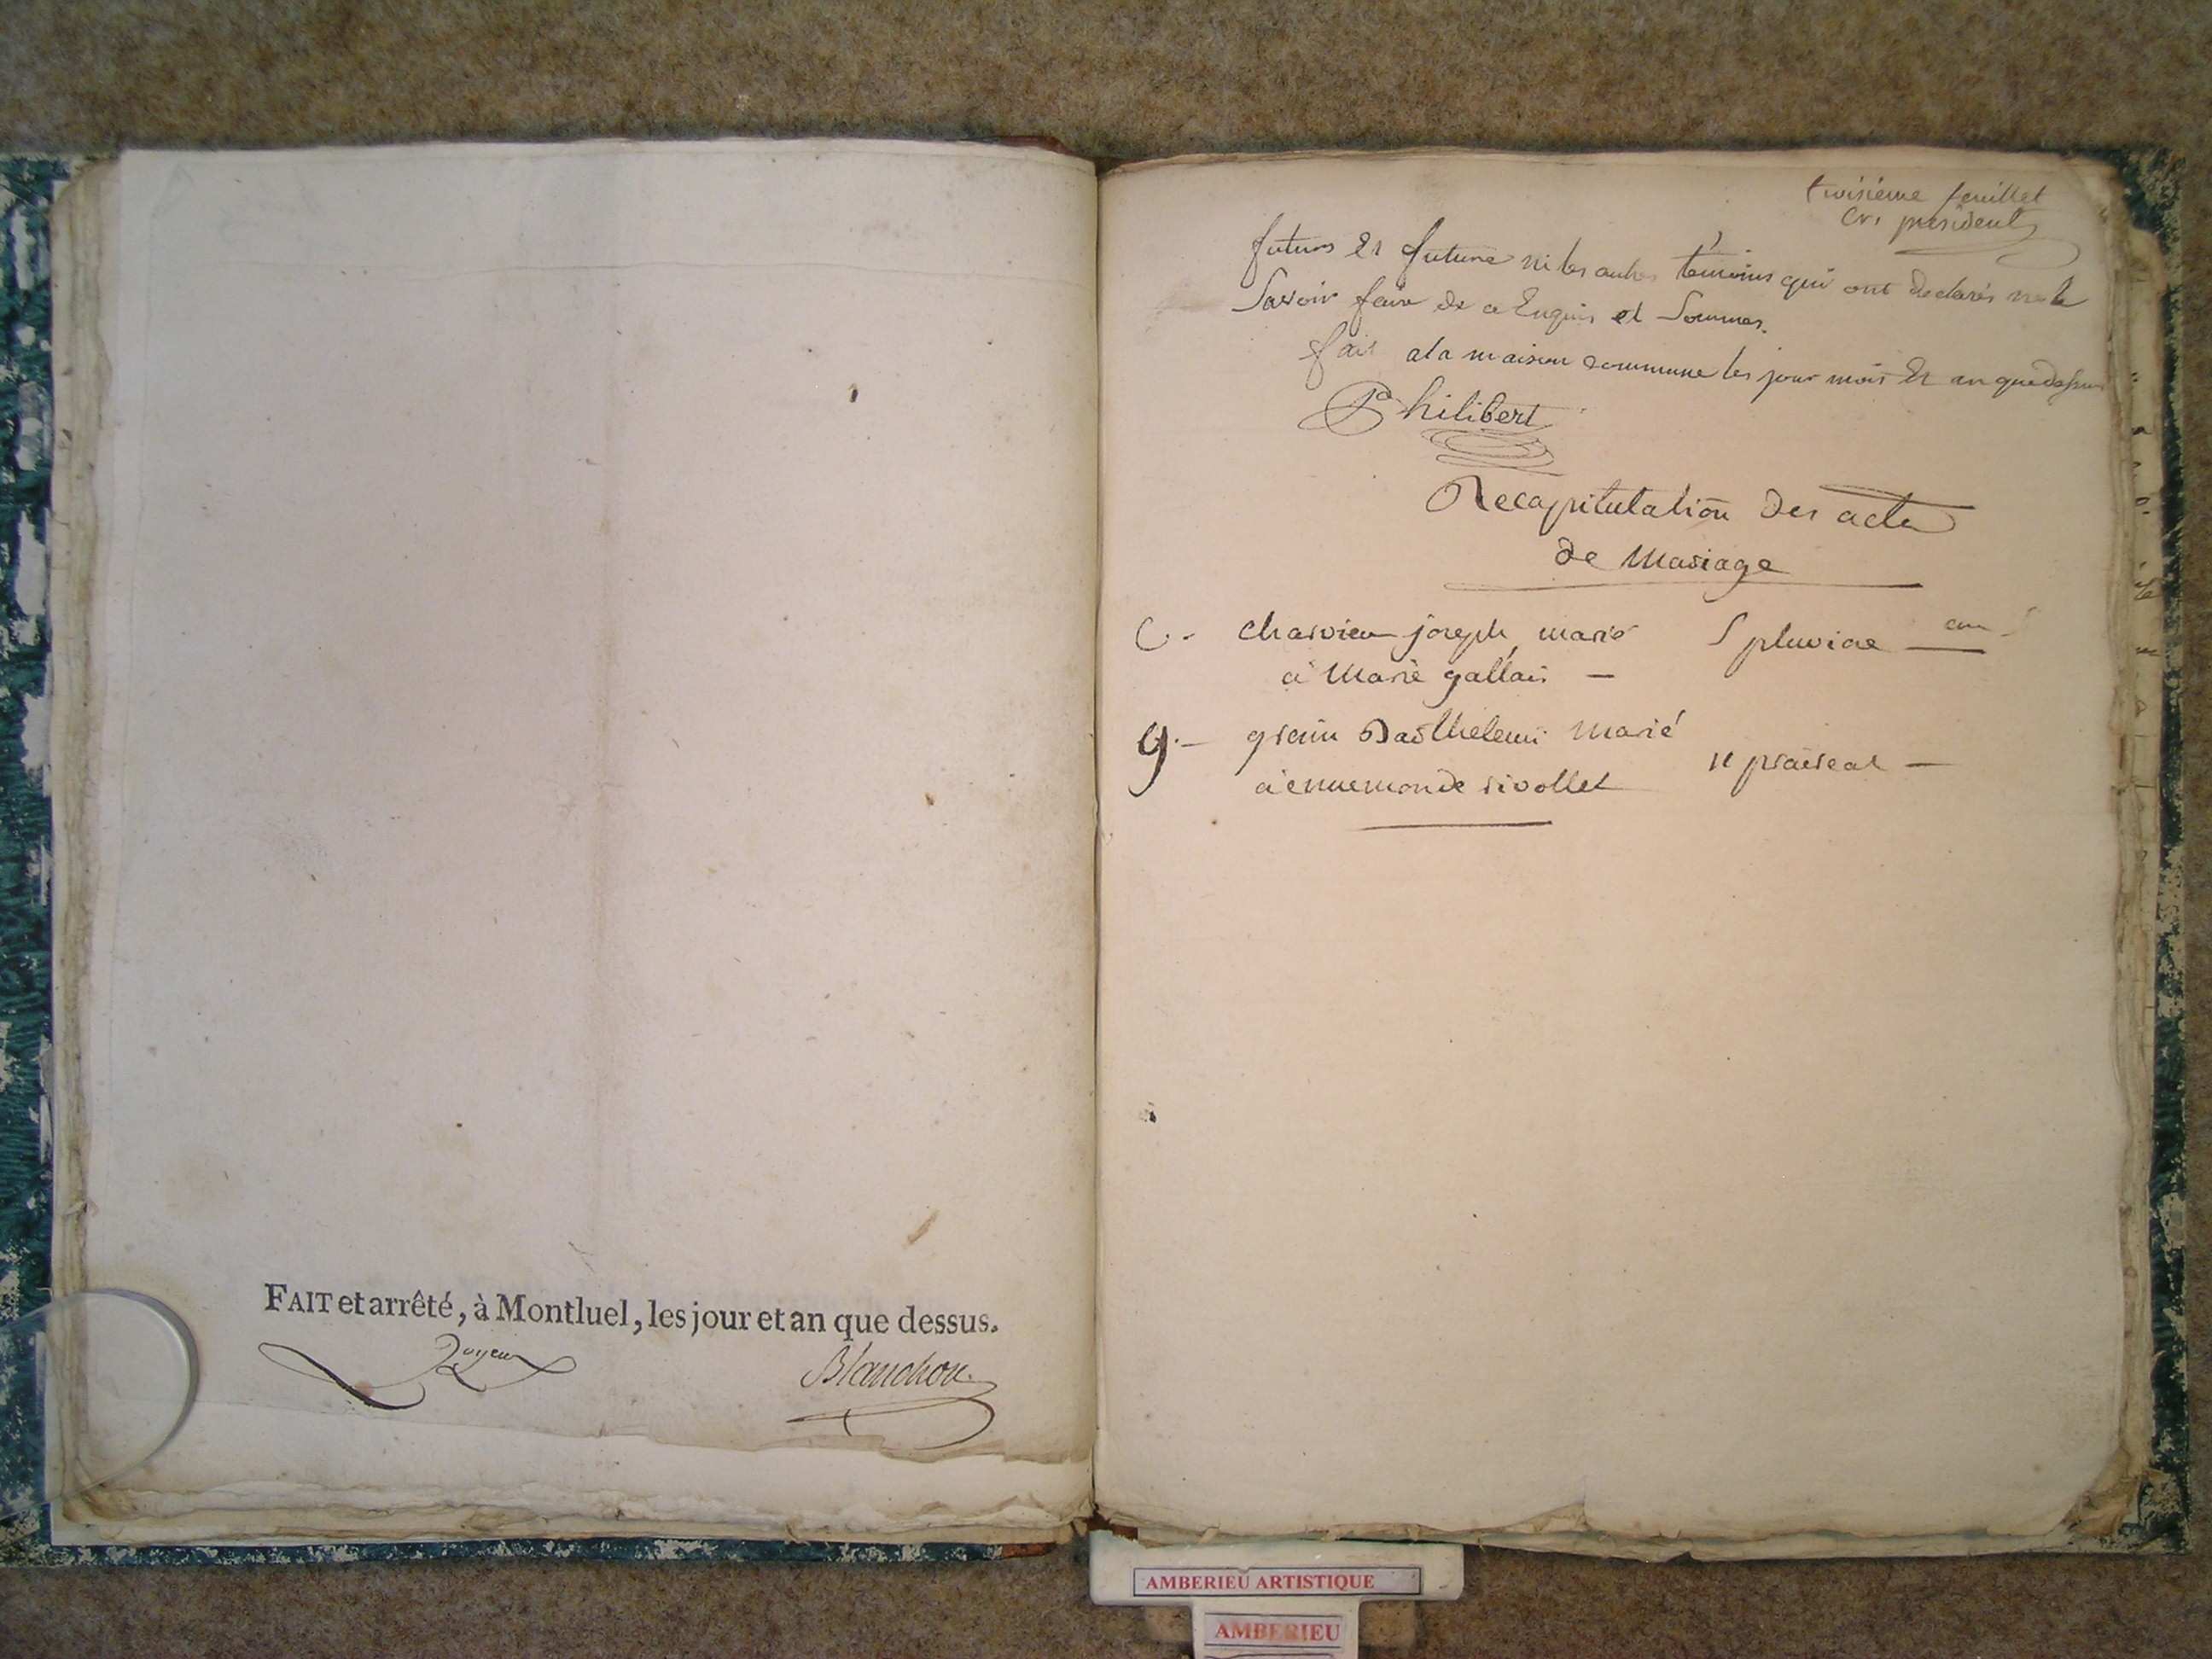 FAIT et arrêté, à Montluel, les jour et an que dessus.
Blanchon
troisieme feuillet
president
futurs et future ni les autres témoins qui ont declarés ne le
Savoir faire de ce Enquis et Sommes.
fait a la maison commune les jour mois Et an que dessus
Philibert
Recapitulation des acte
de Mariage
C. - charvieu joseph marié 5 pluviose an
a Marie gallais -
g. - grain Barthelemi Marié
11 praireal -
a ennemonde rivollet
AMBERIEU ARTISTIQUE
AMBERIEU